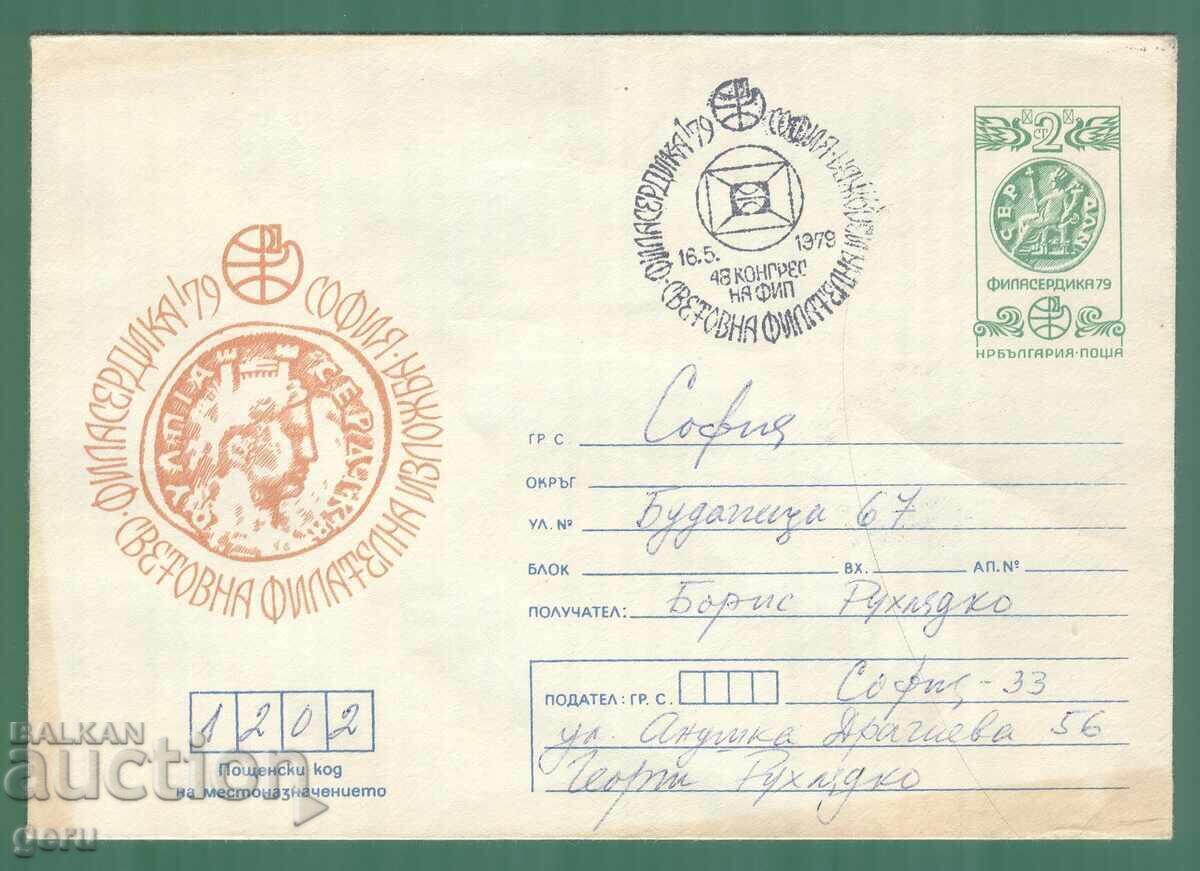 ФИЛАСЕРДИКА'79 · СОФИЯ · ИЗЛОЖБА
· СВЕТОВНА ФИЛАТЕЛНА
ФИЛАСЕРДИКА'79 · СОФИЯ · ИЗЛОЖБА
· СВЕТОВНА ФИЛАТЕЛНА
16.5. 1979
48 КОНГРЕС
НА ФИП
2 СТ
СЕР ДΩΝ
ФИЛАСЕРДИКА 79
НРБЪЛГАРИЯ·ПОЩА
ГР. С. София
ОКРЪГ
УЛ. № Будапеща 67
БЛОК ВХ. АП. №
ПОЛУЧАТЕЛ: Борис Рухлядко
ПОДАТЕЛ: ГР. С. София - 33
ул. Драгиева 56
Георги Рухлядко
1202
Пощенски код
на местоназначението
BALKAN
auction
geru